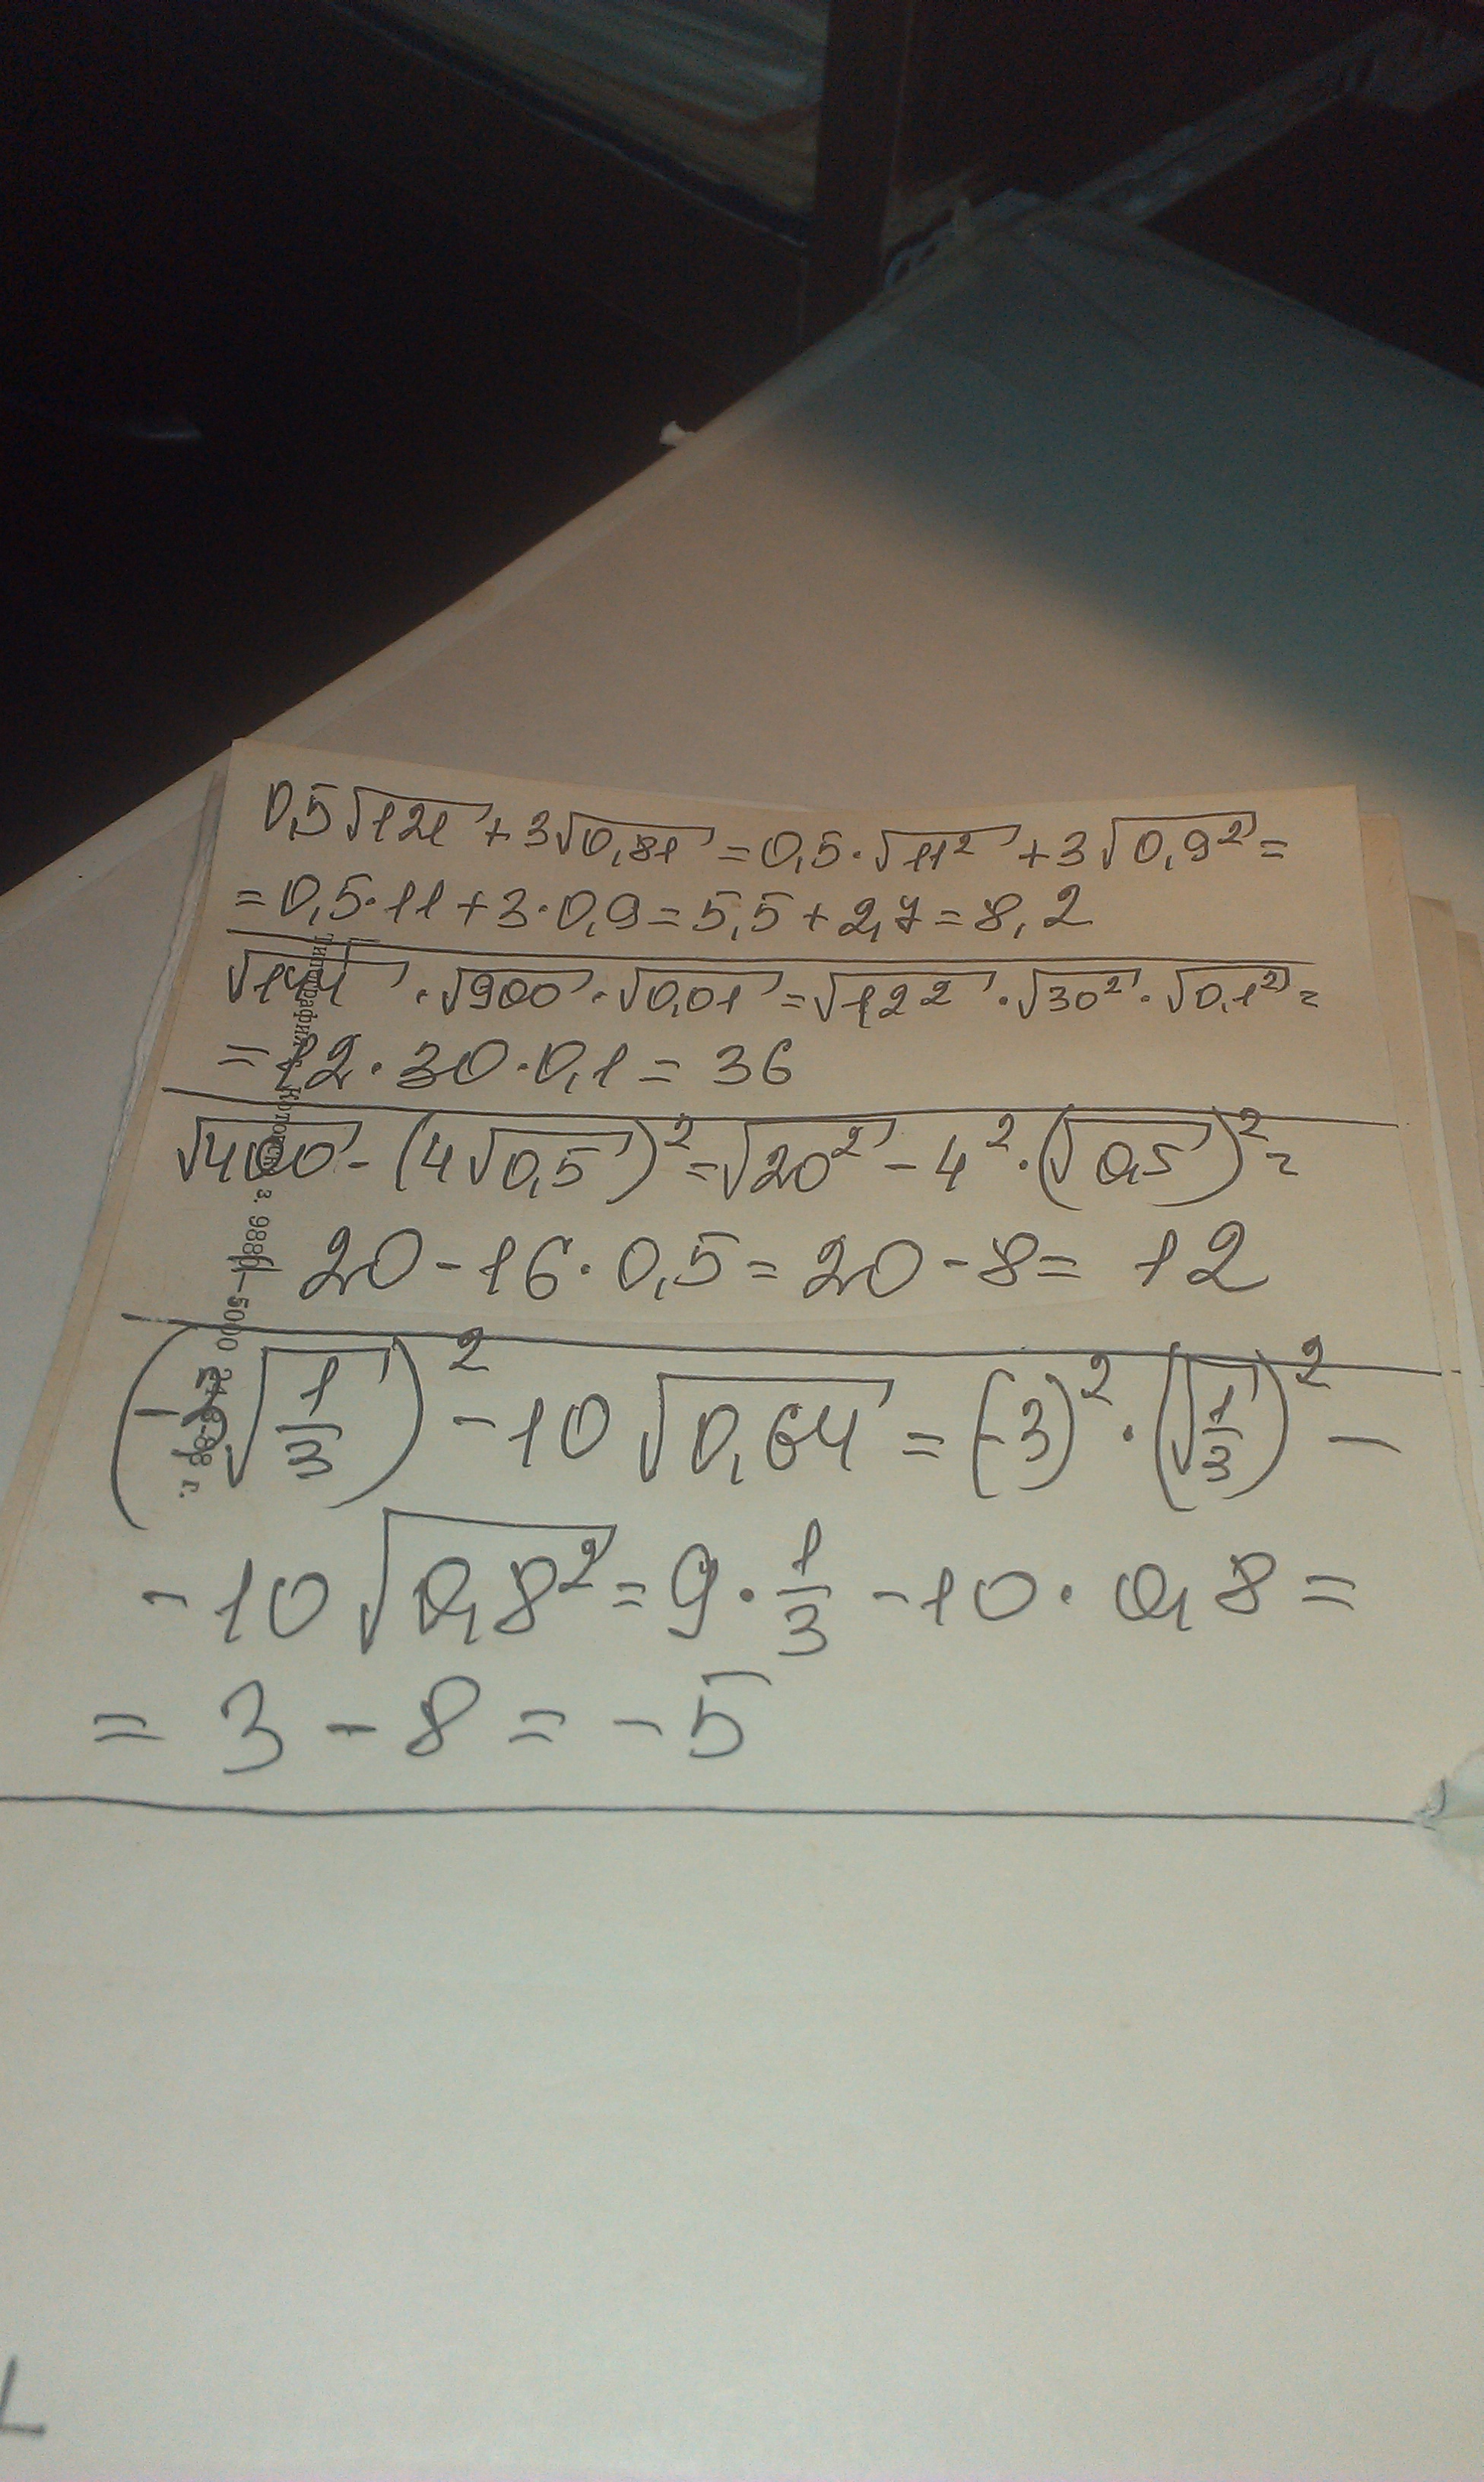 0,5√121 + 3√0,81 = 0,5·√11² + 3√0,9² =
= 0,5·11 + 3·0,9 = 5,5 + 2,7 = 8,2
√144 · √900 · √0,01 = √12² · √30² · √0,1² =
= 12·30·0,1 = 36
√400 - (4√0,5)² = √20² - 4²·(√0,5)² =
= 20 - 16·0,5 = 20 - 8 = 12
(-3√1/3)² - 10√0,64 = (-3)²·(√1/3)² -
- 10√0,8² = 9·1/3 - 10·0,8 =
= 3 - 8 = -5
Типография